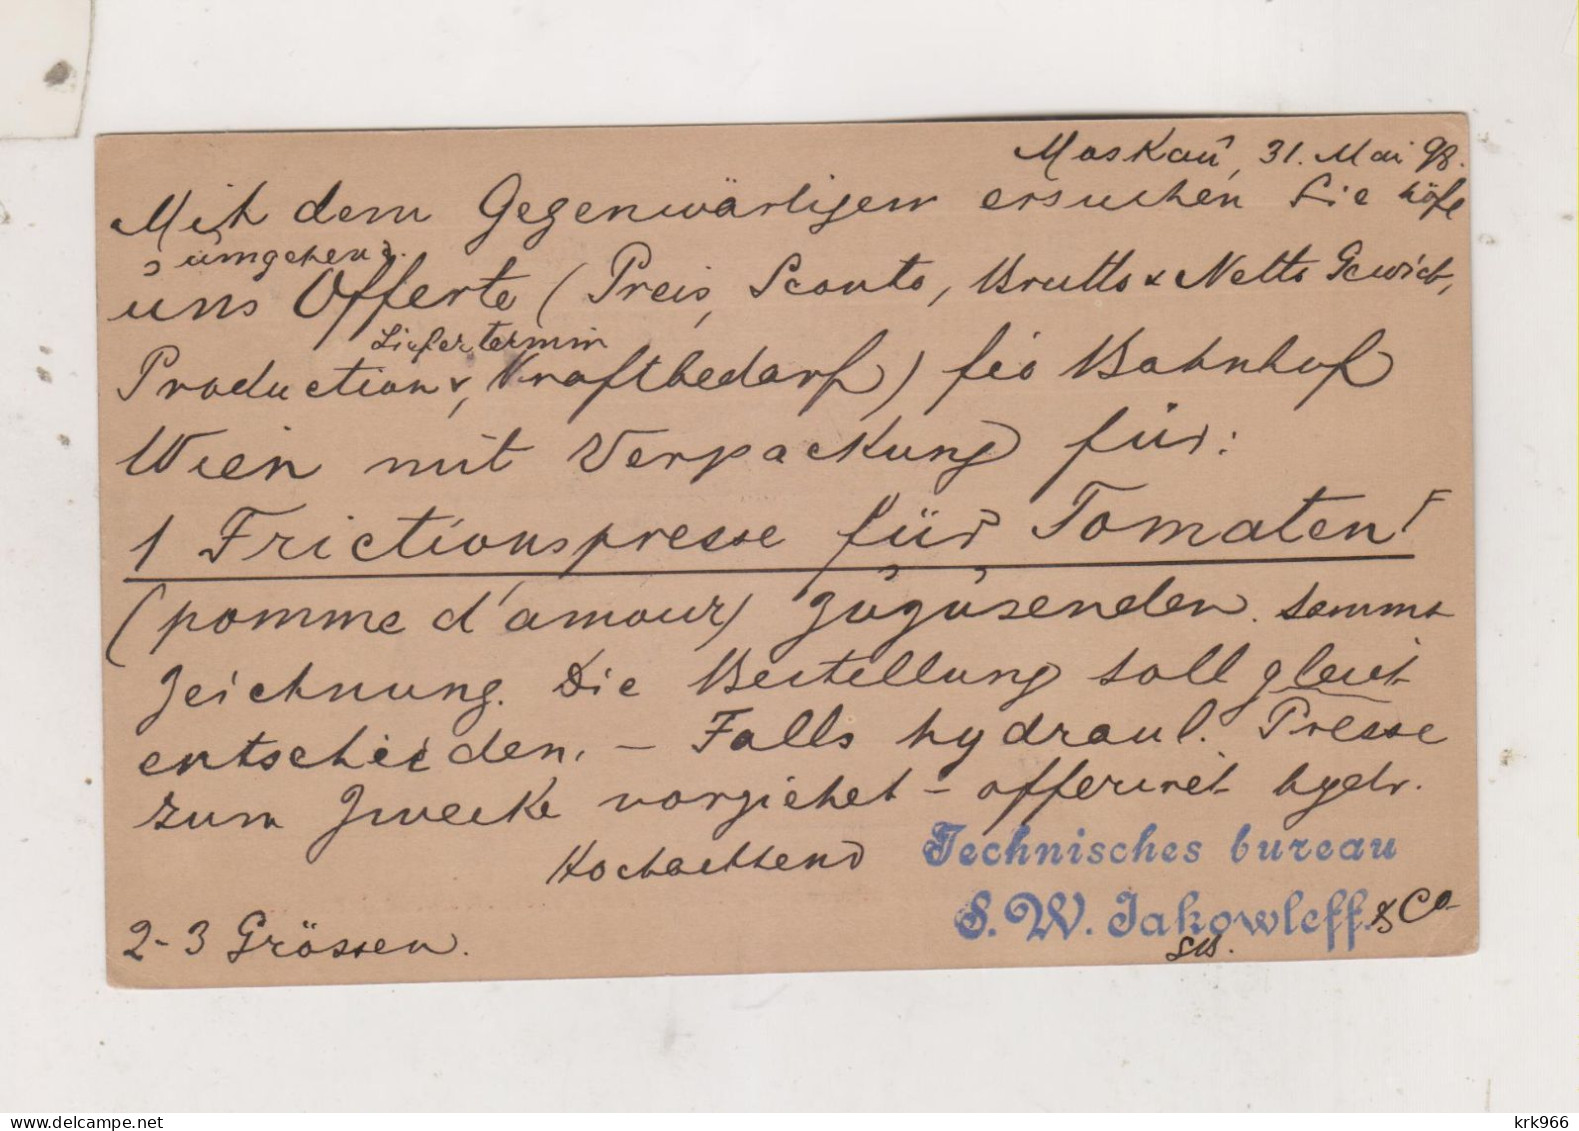 Moskau, 31. Mai 98.
Mit dem Gegenwärtigen ersuchen Sie höfl
umgehend.
uns Offerte (Preis, Sconto, Brutto & Netto Gewicht,
Liefertermin
Production &, Kraftbedarf) fco Bahnhof
Wien mit Verpackung für:
1 Frictionspresse für Tomaten!
(pomme d'amour) zuzusenden. sammt
Zeichnung. Die Bestellung soll gleich
entschieden. – Falls hydraul. Presse
zum Zwecke vorziehet – offeriret hydr.
Hochachtend
Technisches bureau
S. W. Jakowleff & Co
2-3 Grössen.
krk966